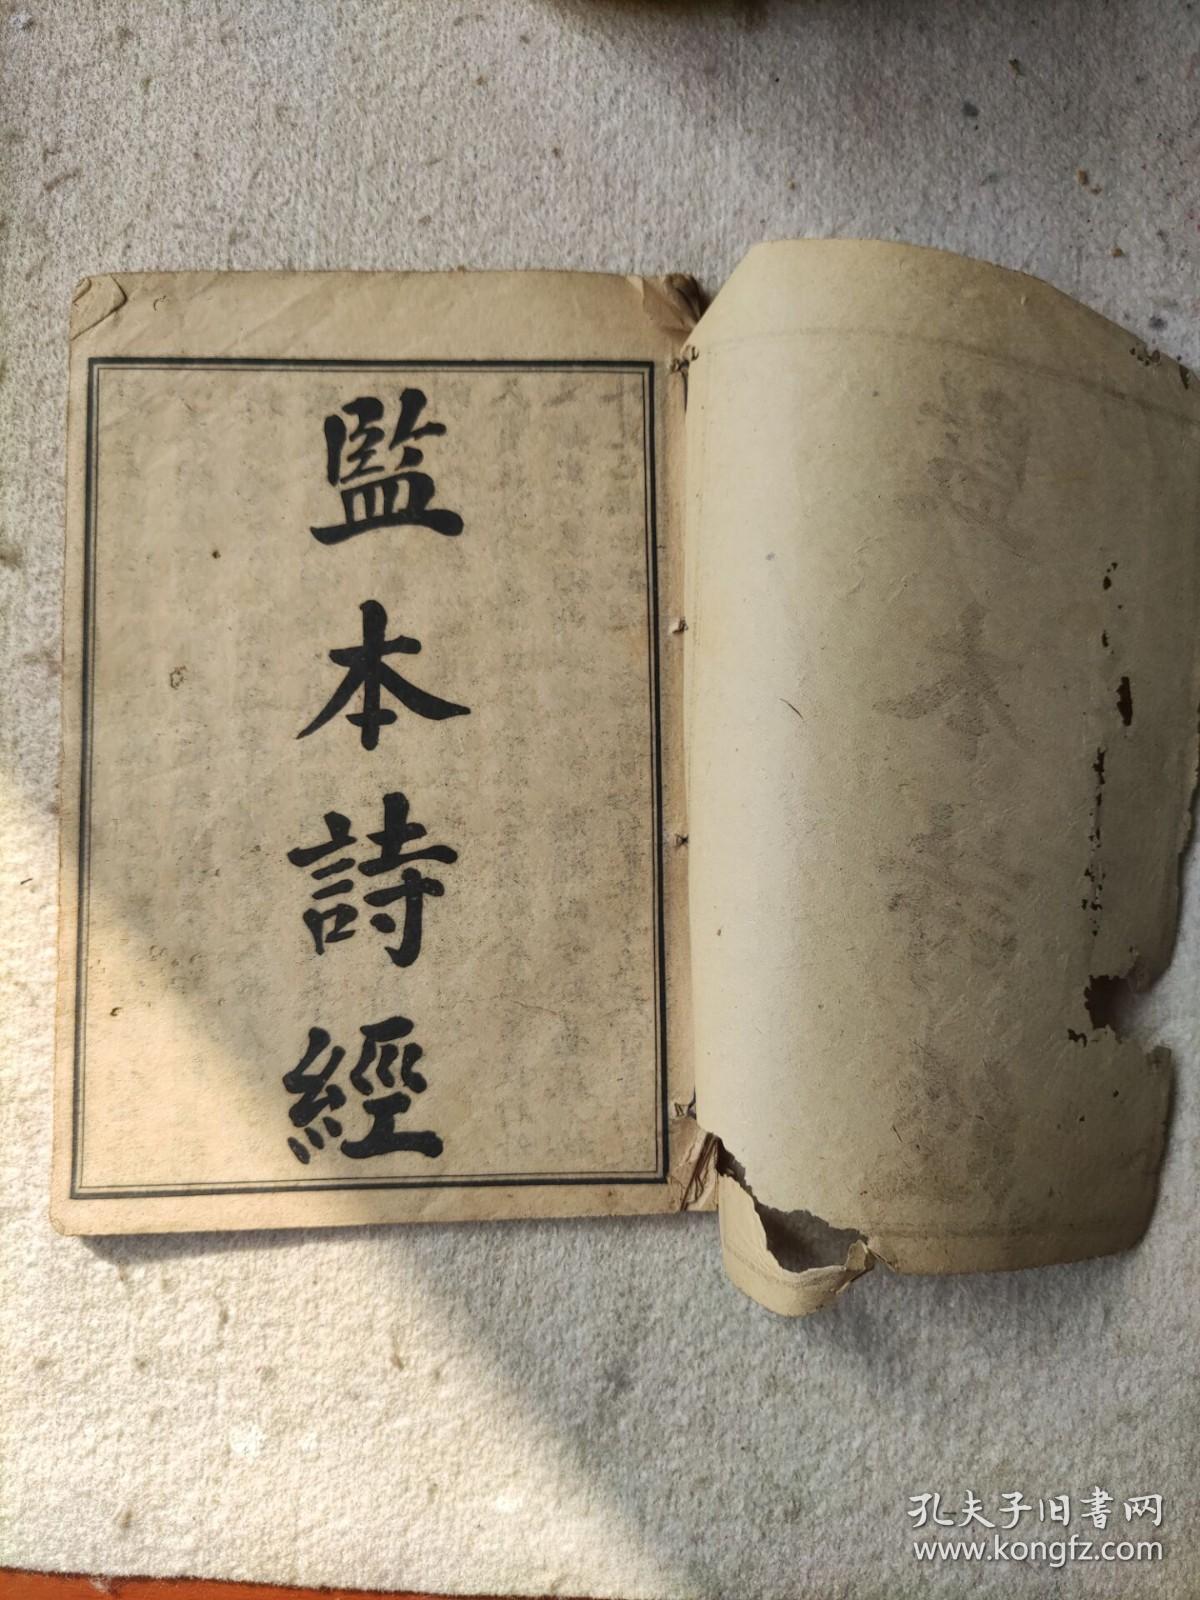 監本詩經
孔夫子旧書网
www.kongfz.com